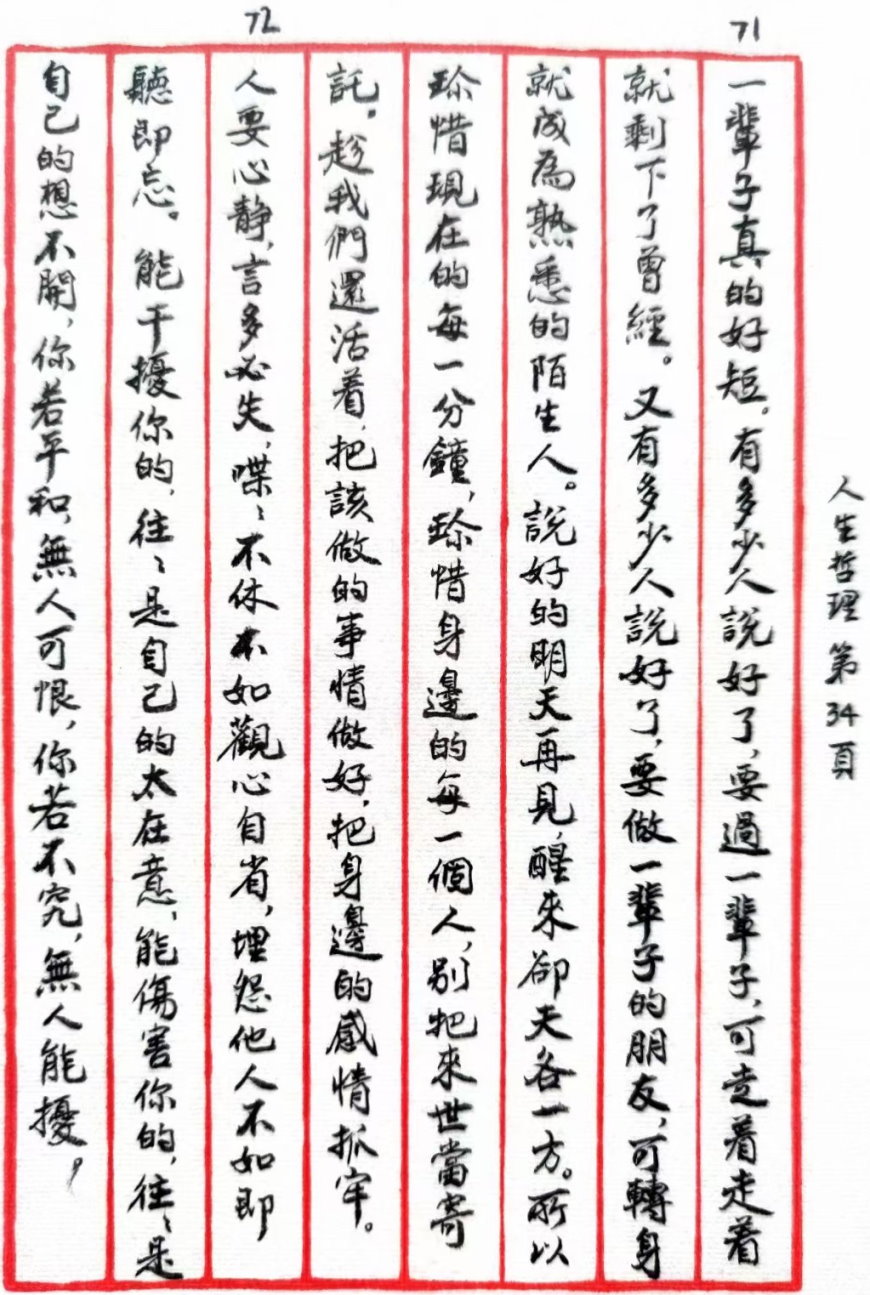 人生哲理 第34頁
71
一輩子真的好短。有多少人說好了,要過一輩子,可走着走着
就剩下了曾經。又有多少人說好了,要做一輩子的朋友,可轉身
就成為熟悉的陌生人。說好的明天再見,醒來卻天各一方。所以
珍惜現在的每一分鐘,珍惜身邊的每一個人,別把來世當寄
託。趁我們還活着,把該做的事情做好,把身邊的感情抓牢。
72
人要心靜,言多必失,喋々不休不如觀心自省,埋怨他人不如即
聽即忘。能干擾你的,往々是自己的太在意,能傷害你的,往々是
自己的想不開,你若平和,無人可恨,你若不究,無人能擾。